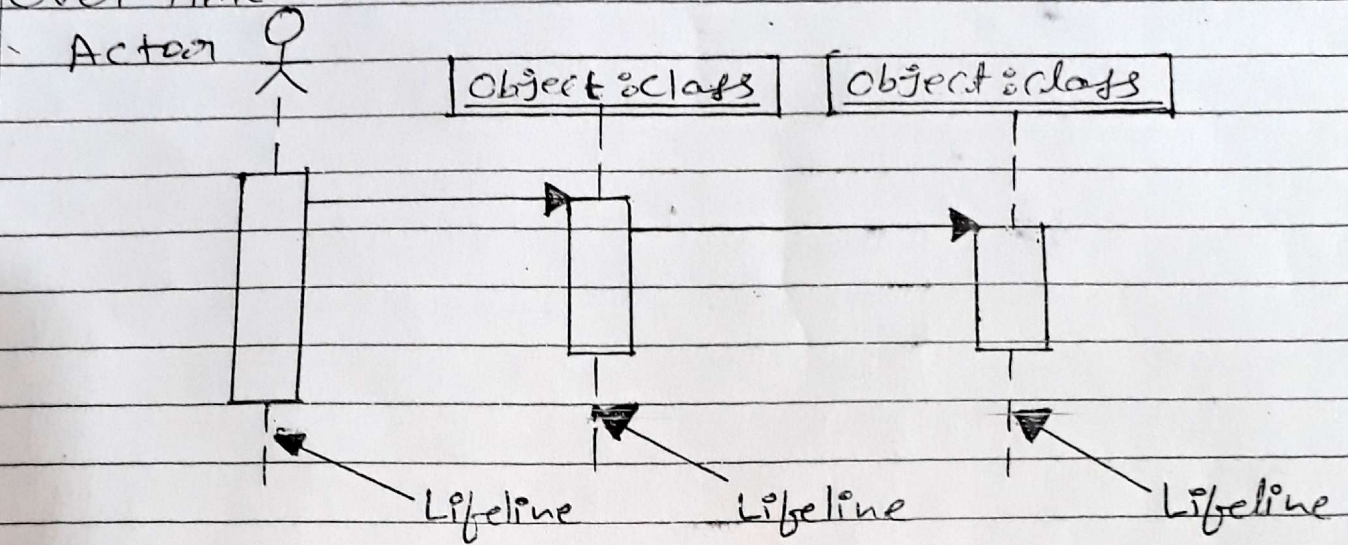 over Time
Actor
Object :Class
Object :Class
Lifeline
Lifeline
Lifeline